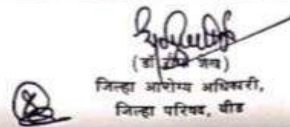 (डॉ
जिल्हा आरोग्य अधिकारी,
जिल्हा परिषद, बीड